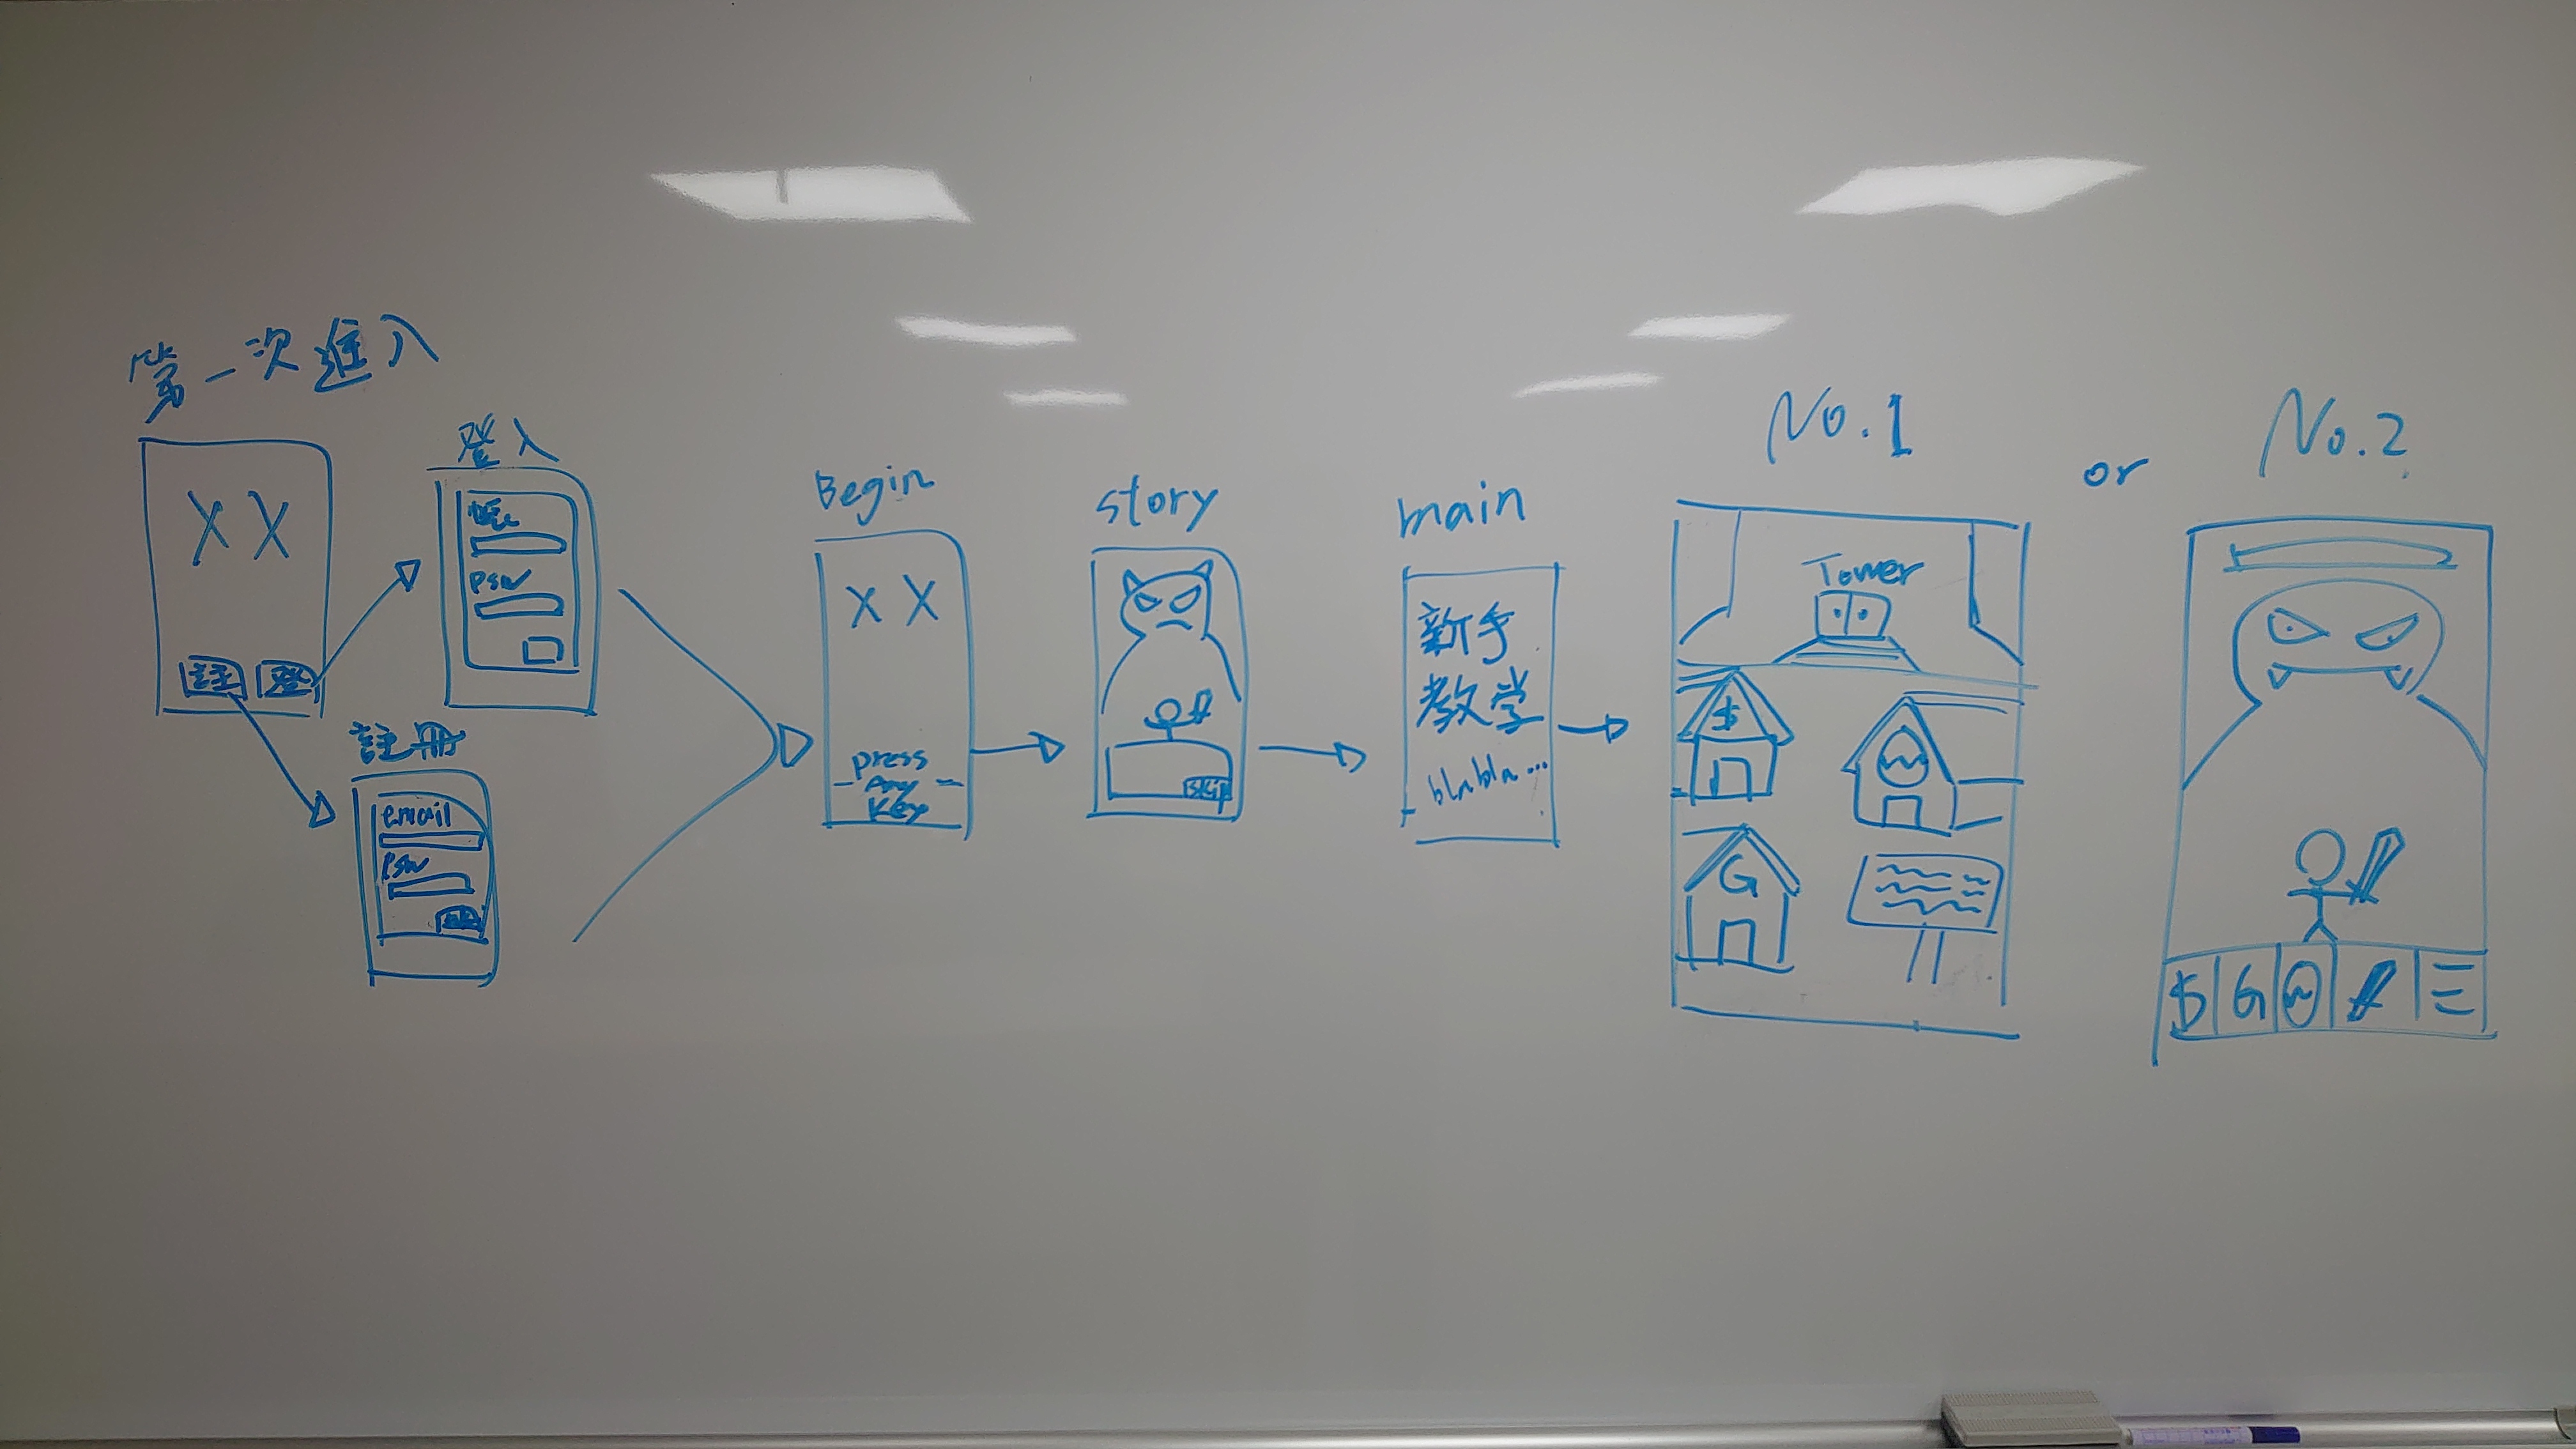 第一次進入
X X
註 登
登入
psw
註冊
email
psw
Begin
X X
press
- Any -
Key
story
skip
main
新手
教学
blabla...
No.1
Tower
$
G
or
No.2
$ G